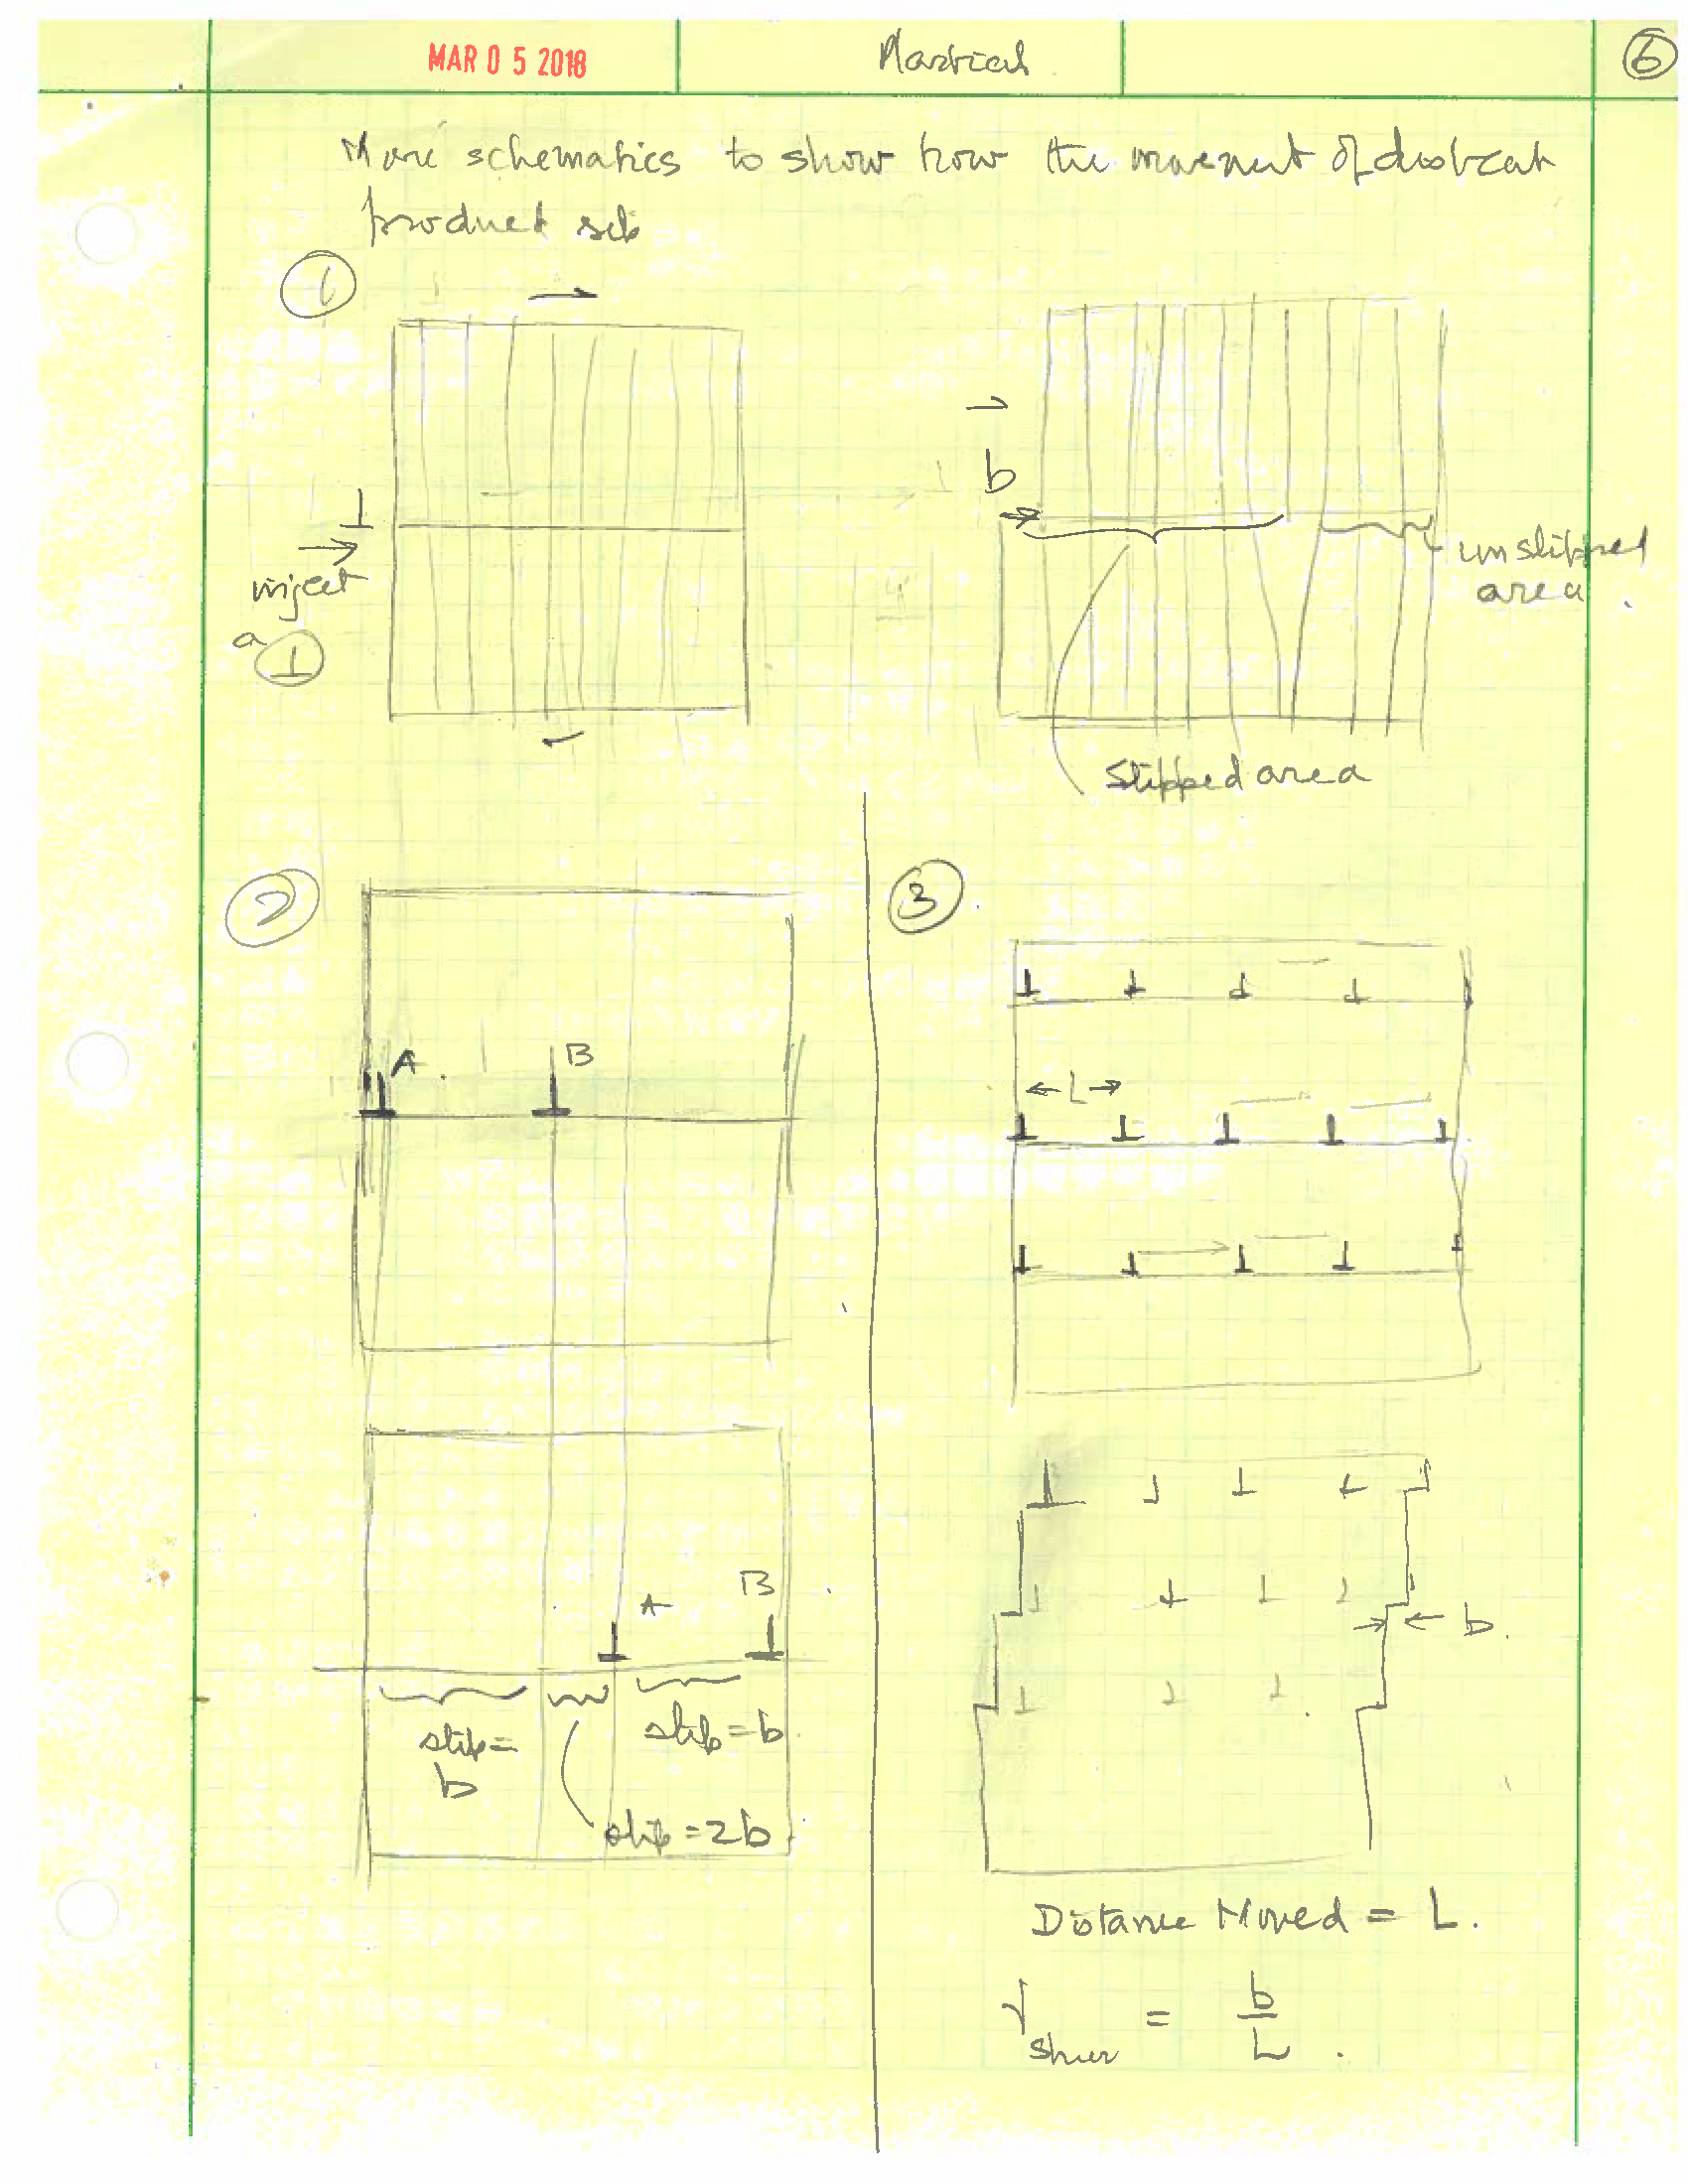 MAR 05 2018
6
More schematics to show how the movement of
product slip
1
⊥
inject
a ⊥
b
unslipped
area.
Slipped area
2
A
B
A
B
slip =
b
slip = b
slip = 2b
3
← L →
→ ← b.
Distance Moved = L.
γ shear = b/L.